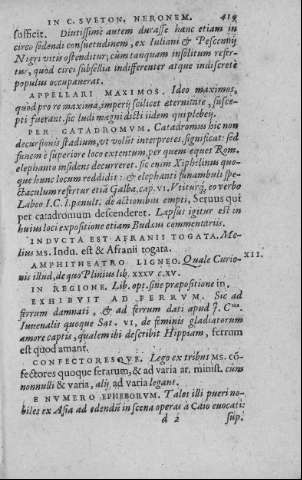 IN C. SVETON, NERONEM. 419
sosficit. Diutissimè autem durasse hanc etiam in
circo sedendi consuetudinem, ex Iuliani & Pescennij
Nigri vitis ostenditur; cùm tanquam insolitum refer-
tur, quòd circi subsellia indifferenter atque indiscretè
populus occupauerat.
APPELLARI MAXIMOS. Ideo maximos,
quòd pro re maxima, imperij scilicet eternitate, susce-
pti fuerant. sic ludi magni dicti iidem qui plebeij.
PER CATADROMVM. Catadromus hîc non
decursionis stadium, vt volũt interpretes, significat: sed
funem è superiore loco extentum, per quem eques Rom.
elephanto insidens decurreret. sic enim Xiphilinus quo-
que hunc locum reddidit: & elephanti funambuli spe-
ctaculum refertur etiã Galba, cap. VI. Vtiturq́ eo verbo
Labeo I. C. l. penult. de actionibus empti, Seruus qui
per catadromum descenderet. Lapsus igitur est in
huius loci expositione etiam Budæus commentariis.
INDVCTA EST AFRANII TOGATA. Me-
lius MS. Indu. est & Afranii togata.
AMPHITHEATRO LIGNEO. Quale Curio- XII.
nis illud, de quo Plinius lib. XXXV c. XV.
IN REGIONE. Lib. opt. sine præpositione in.
EXHIBVIT AD FERRVM. Sic ad
ferrum damnati, & ad ferrum dari apud J. Cõs.
Iuuenalis quoque Sat. VI, de feminis gladiatorum
amore captis, qualem ibi describit Hippiam, ferrum
est quod amant.
CONFECTORESQVE. Lego ex tribus MS. cõ-
fectores quoque ferarum, & ad varia ar. minist. cùm
nonnulli & varia, alij ad varia legant.
E NVMERO EPHEBORVM. Tales illi pueri no-
biles ex Asia ad edendũ in scena operas à Caio euocati:
d 2 sup.